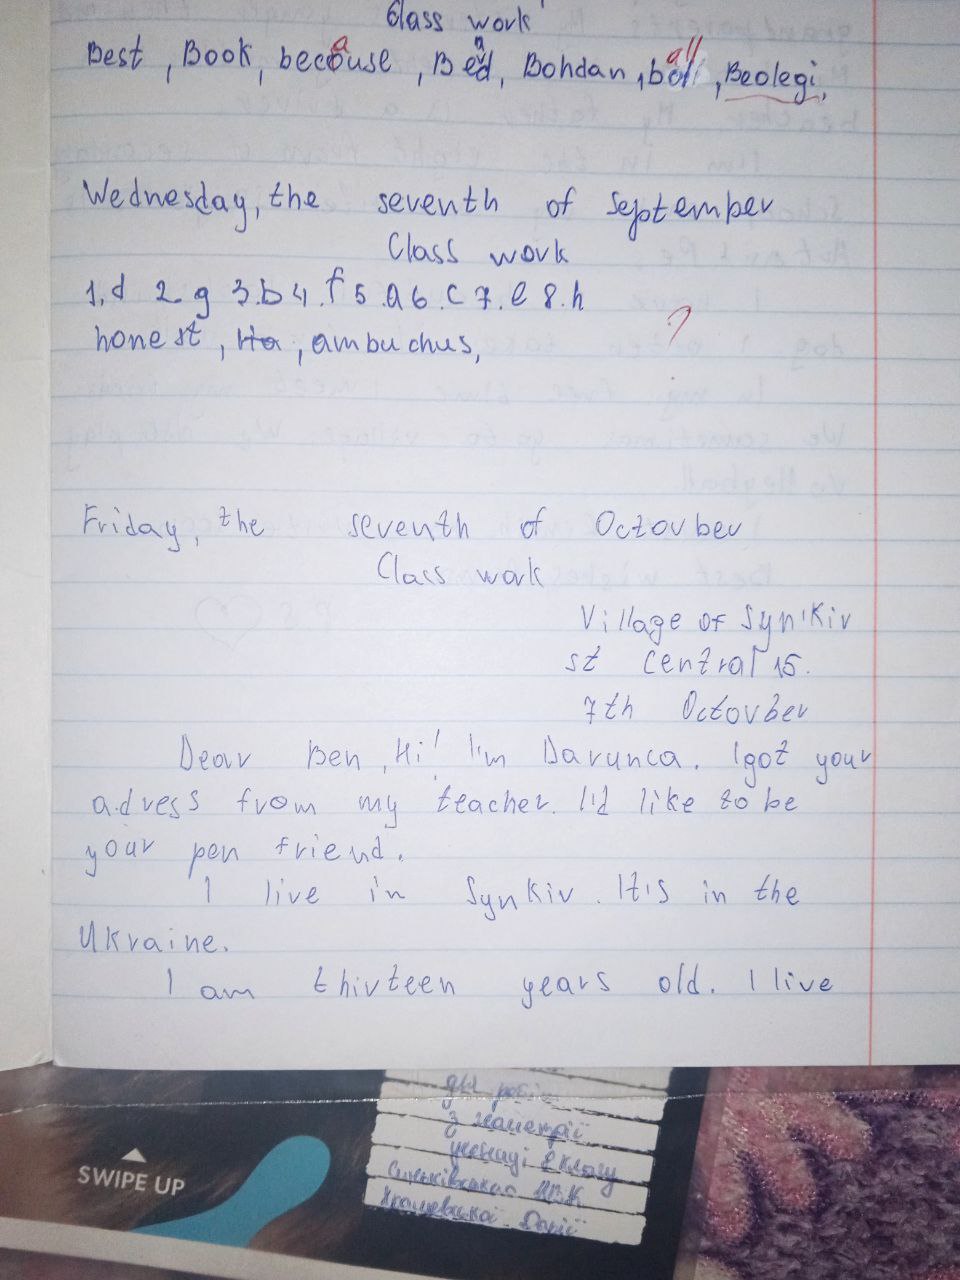 Class work
Best, Book, becouse, Bed, Bohdan, boll, Beolegi,
a a all
Wednesday, the seventh of September
Class work
1, d 2 g 3.b 4.f 5.a 6.c 7.e 8.h
honest, Ha, ambuchus,
?
Friday, the seventh of Octovber
Class work
Village of Syn'Kiv
st Central 15.
7th Octovber
Dear Ben, Hi! I'm Darunca. I got your
adress from my teacher. I'd like to be
your pen friend.
I live in SynKiv. It's in the
Ukraine.
I am thirteen years old. I live
SWIPE UP
з геометрії
учениці 8 класу
Синьківської НВК
Дарії